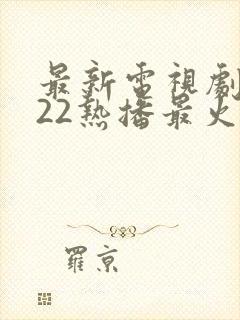 最新電視劇
22熱播最火
羅京